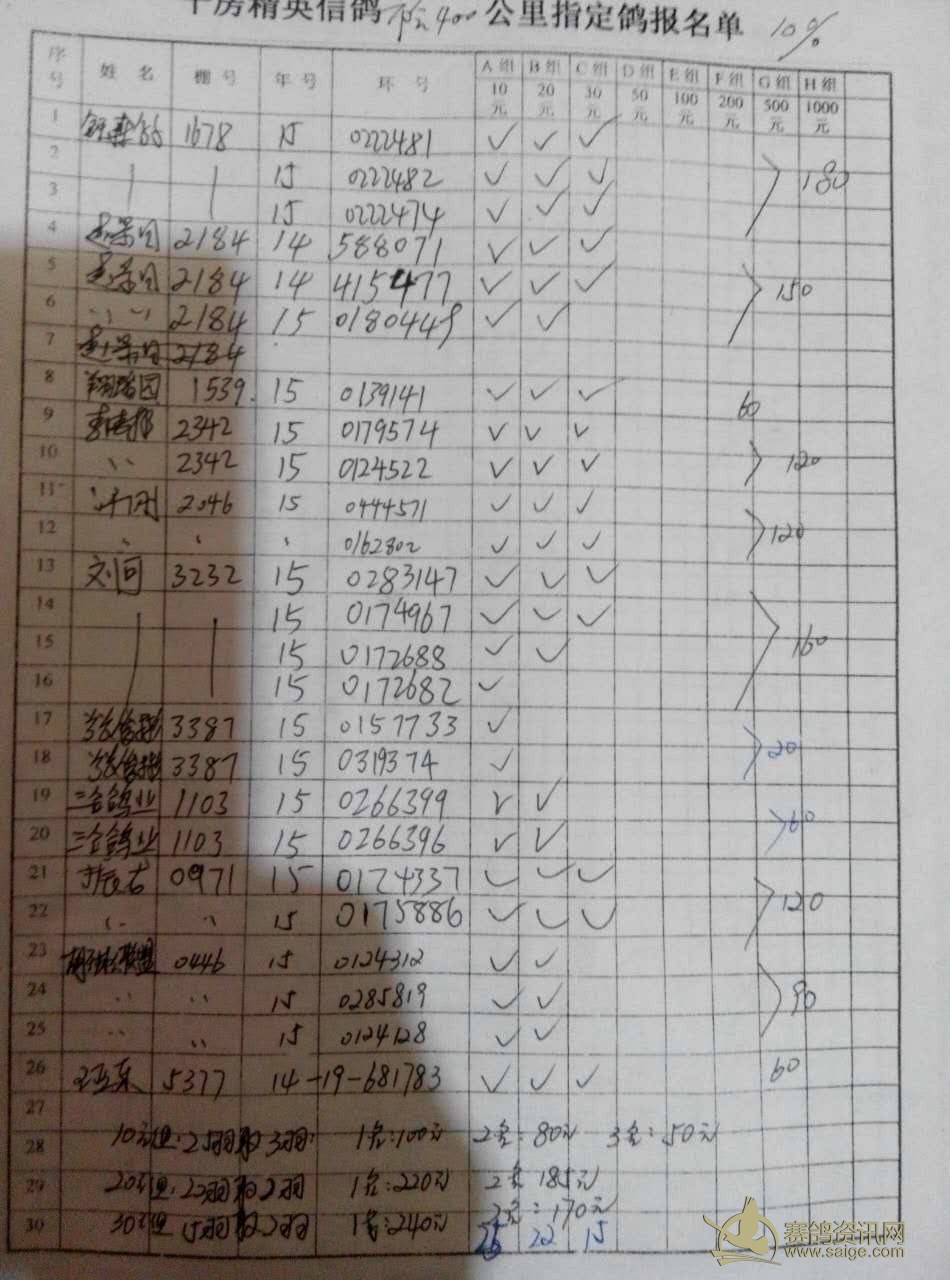 精英信鸽 400公里指定鸽报名单 10%
序号 姓名 棚号 年号 环号 A组10元 B组20元 C组30元 D组50元 E组100元 F组200元 G组500元 H组1000元
1 1678 15 0222481 ✓ ✓ ✓
2 15 0222482 ✓ ✓ ✓ 180
3 15 0222474 ✓ ✓ ✓
4 2184 14 588071 ✓ ✓ ✓
5 2184 14 415477 ✓ ✓ ✓ 150
6 〃 2184 15 0180449 ✓ ✓
7 2184
8 1539 15 0139141 ✓ ✓ ✓ 60
9 2342 15 0179574 ✓ ✓ ✓
10 〃 2342 15 0124522 ✓ ✓ ✓ 120
11 2046 15 0444571 ✓ ✓ ✓
12 〃 〃 〃 0162802 ✓ ✓ ✓ 120
13 3232 15 0283147 ✓ ✓ ✓
14 15 0174967 ✓ ✓ ✓
15 15 0172688 ✓ ✓ 160
16 15 0172682 ✓
17 3387 15 0157733 ✓
18 3387 15 0319374 ✓ 20
19 三合鸽业 1103 15 0266399 ✓ ✓
20 三合鸽业 1103 15 0266396 ✓ ✓ 60
21 0971 15 0174337 ✓ ✓ ✓
22 〃 〃 15 0175886 ✓ ✓ ✓ 120
23 0446 15 0124312 ✓ ✓
24 〃 〃 15 0285819 ✓ ✓ 90
25 〃 〃 15 0124128 ✓ ✓
26 王亚东 5377 14-19-681783 ✓ ✓ ✓ 60
27
28 10元组:25羽取3羽: 1名:100元 2名:80元 3名:50元
29 20元组:22羽取2羽 1名:220元 2名 185元
30 30元组 15羽取2羽 1名:240元 2名:170元
26 22 15
赛鸽资讯网
www.saige.com